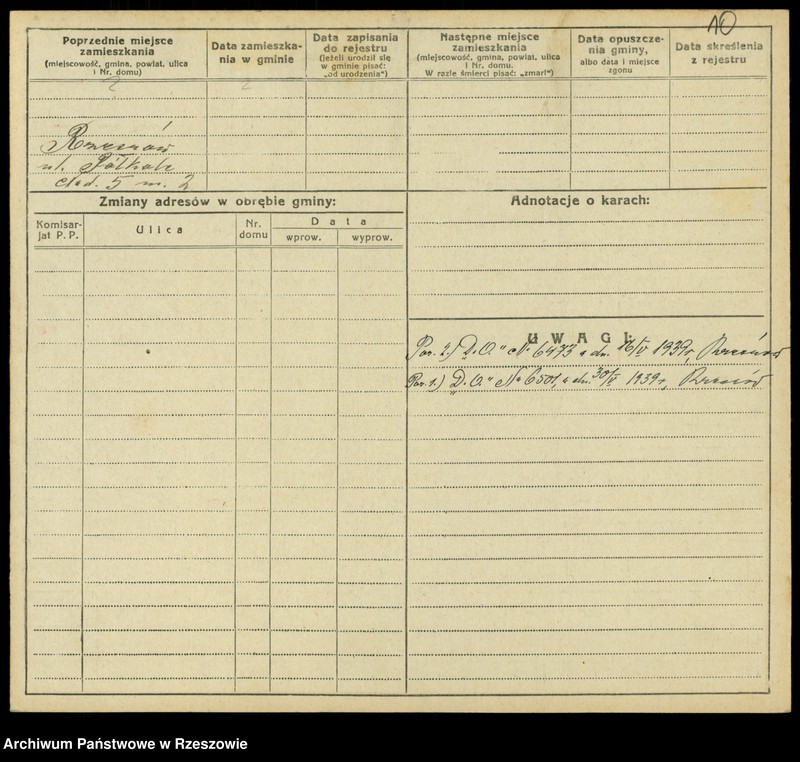 10
Poprzednie miejsce
zamieszkania
(miejscowość, gmina, powiat, ulica
i Nr. domu)
Data zamieszka-
nia w gminie
Data zapisania
do rejestru
(jeżeli urodził się
w gminie pisać:
„od urodzenia")
Następne miejsce
zamieszkania
(miejscowość, gmina, powiat, ulica
i Nr. domu.
W razie śmierci pisać: „zmarł")
Data opuszcze-
nia gminy,
albo data i miejsce
zgonu
Data skreślenia
z rejestru
Rzeszów
ul.
5 m. 2
Zmiany adresów w obrębie gminy:
Komisar-
jat P. P.
Ulica
Nr.
domu
Data
wprow.
wyprow.
Adnotacje o karach:
UWAGI:
Par. 2.) „D.O." № 6473 z dn. 16/V 1939 r, Rzeszów
Par. 1.) „D.O." № 6501, z dn. 30/V 1939 r, Rzeszów
Archiwum Państwowe w Rzeszowie